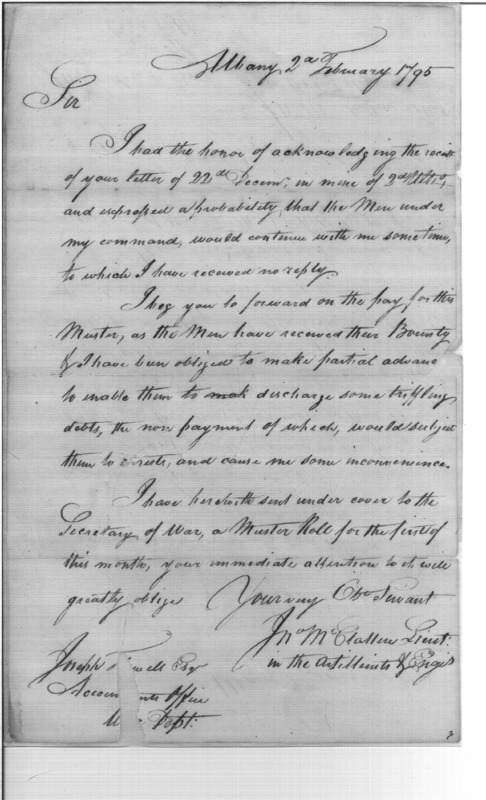 Albany 2d February 1795
Sir
I had the honor of acknowledging the receipt
of your letter of 22d Decemr, in mine of 2d Ulto,
and expressed a probability, that the Men under
my command, would continue with me sometime,
to which I have received no reply.
I beg you to forward on the pay, for this
Muster, as the Men have received their Bounty
& I have been obliged to make partial advanc
to enable them to mak discharge some triffling
debts, the non payment of which, would subject
them to arrests, and cause me some inconvenience.
I have herewith sent under cover to the
Secretary of War, a Muster Roll for the first of
this month, your immediate attention to it will
greatly oblige Your very Obt Servant
Jno McClallen Lieut:
in the Artillerists & Engrs
Joseph Esqr
Office
Dept: